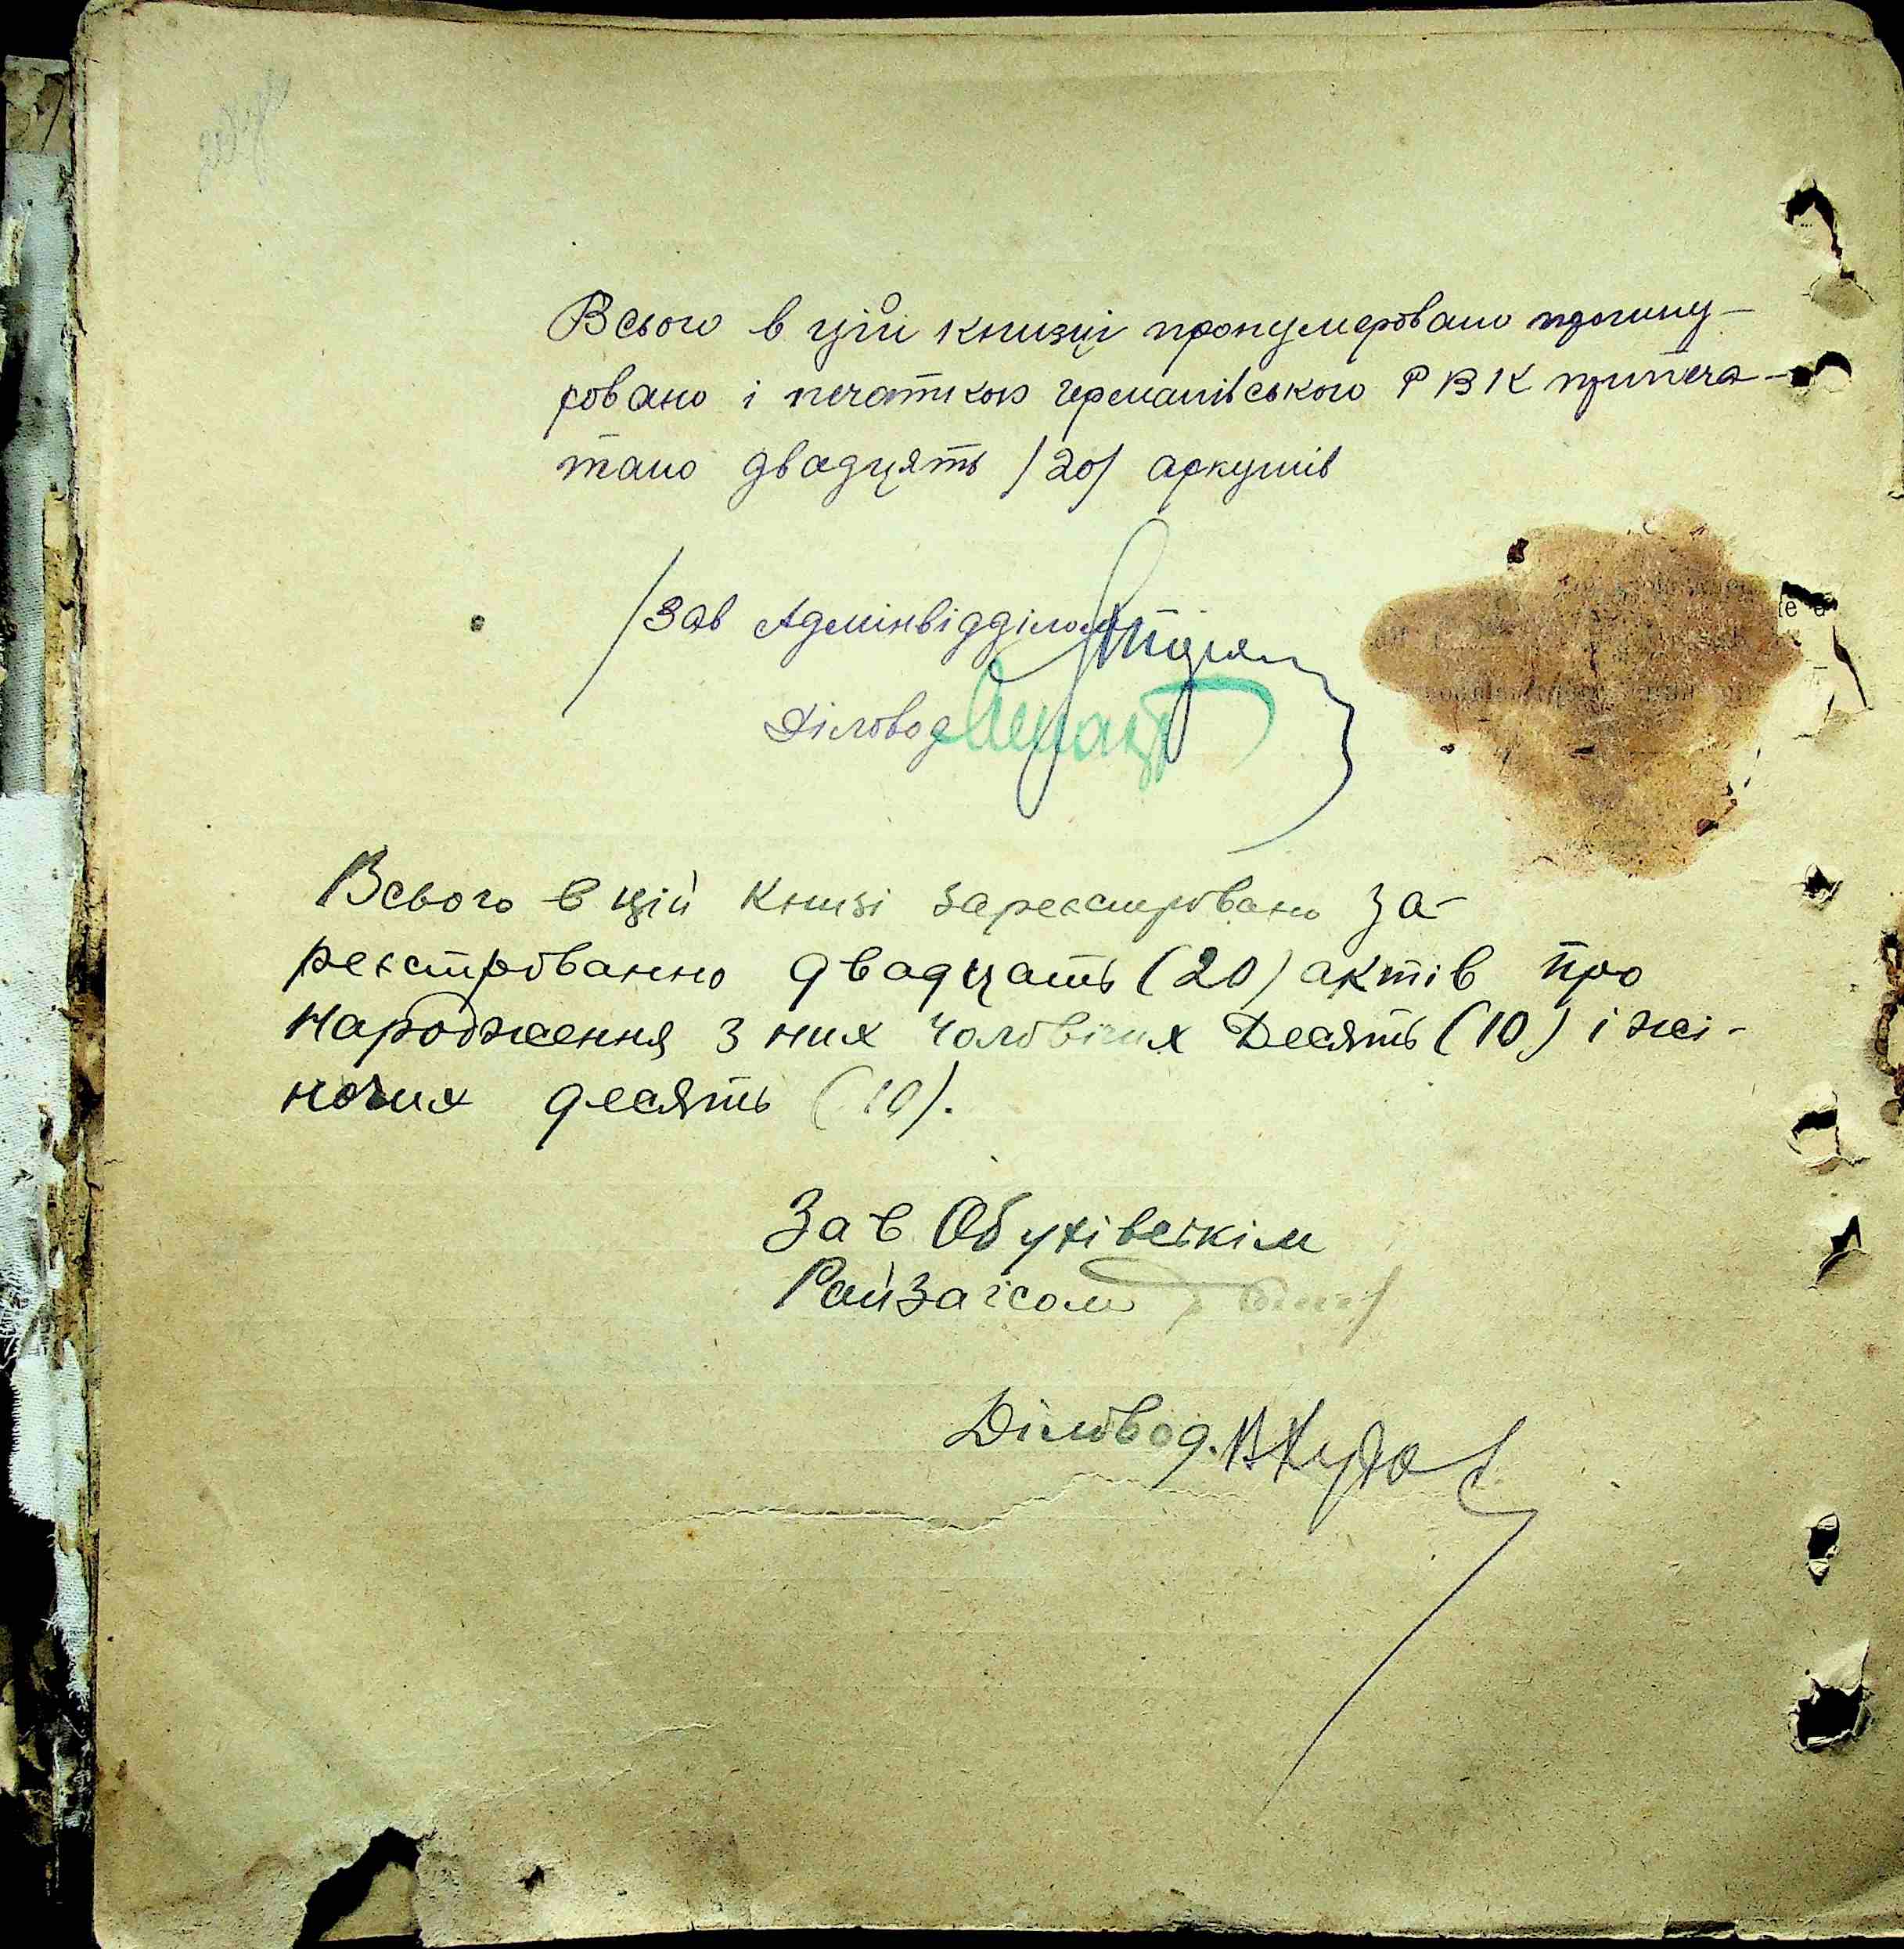 Всього в цій книзці пронумеровано прошну-
ровано і печаткою Германівського РВК припеча-
тано двадцять /20/ аркушів
/Зав Адмінвідділом
Діловод
Всього в цій книзі зареєстровано за-
реєстрованно двадцать (20) актів про
народження з них чоловічих Десять (10) і жі-
ночих десять (10).
Зав Обухівськім
Райзагсом
Діловод.